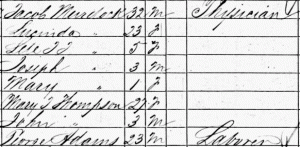 Jacob Murdock 32 M Physician
Lucinda " 23 F
" 5 F
Joseph " 3 M
Mary " 1 F
Mary J Thompson 21 F
John " 3 M
Adams 23 M Laborer